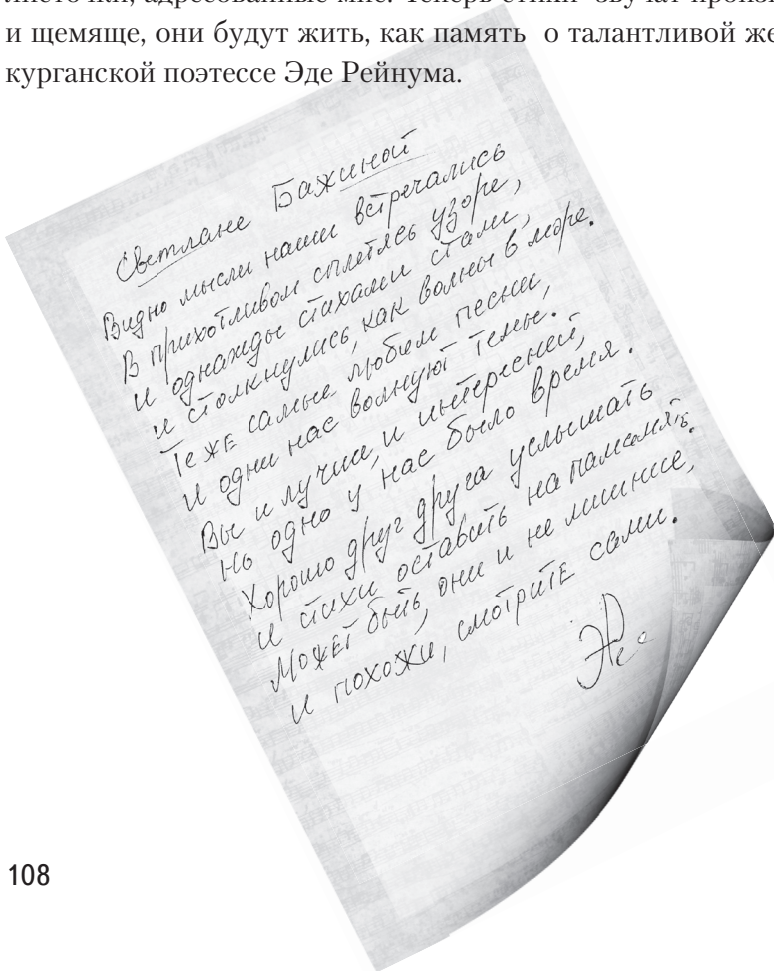 листочки, адресованные мне. Теперь стихи звучат
и щемяще, они будут жить, как память о талантливой
курганской поэтессе Эде Рейнума.
Светлане Бажиной
Видно мысли наши встречались
В прихотливом сплетясь узоре,
И однажды стихами стали,
и столкнулись, как волны в море.
Те же самые любим песни,
И одни нас волнуют темы.
Вы и лучше, и интересней,
Но одно у нас было время.
Хорошо друг друга услышать
И стихи оставить на память.
Может быть, они и не лишние,
И похожи, смотрите сами.
108